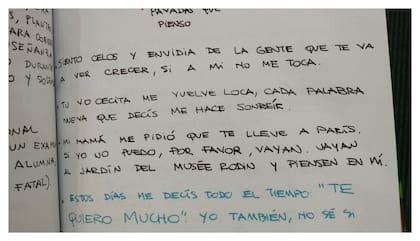 PAVADAS QUE
PIENSO
S, PLAUTA
SEÑANZA
DURANTE
ONAL
UN EXAM
ALUMNA
FATAL).
SIENTO CELOS Y ENVIDIA DE LA GENTE QUE TE VA
A VER CRECER, SI A MI NO ME TOCA.
· TU VOCECITA ME VUELVE LOCA, CADA PALABRA
NUEVA QUE DECÍS ME HACE SONREÍR.
· MI MAMÁ ME PIDIÓ QUE TE LLEVE A PARÍS.
SI YO NO PUEDO, POR FAVOR, VAYAN. VAYAN
AL JARDÍN DEL MUSÉE RODIN Y PIENSEN EN MÍ.
· ESTOS DÍAS ME DECÍS TODO EL TIEMPO: "TE
QUIERO MUCHO". YO TAMBIÉN, NO SÉ SI